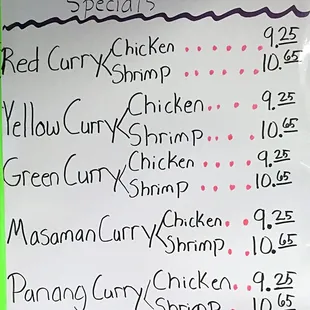 Specials
Chicken ...... 9.25
Red Curry
Shrimp ...... 10.65
Chicken.. .... 9.25
Yellow Curry
Shrimp.. .... 10.65
Chicken .... 9.25
Green Curry
Shrimp .... 10.65
Chicken.. 9.25
Masaman Curry
Shrimp.. 10.65
Chicken.. 9.25
Panang Curry
Shrimp.. 10.65